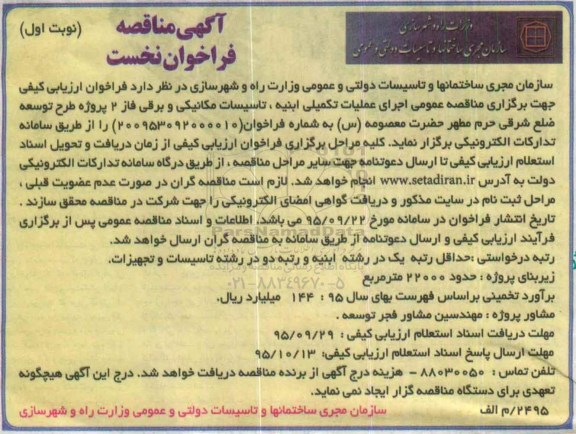 آگهی مناقصه
(نوبت اول)
فراخوان نخست
وزارت راه و شهرسازی
سازمان مجری ساختمانها و تاسیسات دولتی و عمومی
سازمان مجری ساختمانها و تاسیسات دولتی و عمومی وزارت راه و شهرسازی در نظر دارد فراخوان ارزیابی کیفی
جهت برگزاری مناقصه عمومی اجرای عملیات تکمیلی ابنیه ، تاسیسات مکانیکی و برقی فاز ۲ پروژه طرح توسعه
ضلع شرقی حرم مطهر حضرت معصومه (س) به شماره فراخوان(۲۰۰۹۵۳۰۹۲۰۰۰۰۱۰) را از طریق سامانه
تدارکات الکترونیکی برگزار نماید. کلیه مراحل برگزاری فراخوان ارزیابی کیفی از زمان دریافت و تحویل اسناد
استعلام ارزیابی کیفی تا ارسال دعوتنامه جهت سایر مراحل مناقصه ، از طریق درگاه سامانه تدارکات الکترونیکی
دولت به آدرس www.setadiran.ir انجام خواهد شد. لازم است مناقصه گران در صورت عدم عضویت قبلی ،
مراحل ثبت نام در سایت مذکور و دریافت گواهی امضای الکترونیکی را جهت شرکت در مناقصه محقق سازند .
تاریخ انتشار فراخوان در سامانه مورخ ۹۵/۰۹/۲۲ می باشد. اطلاعات و اسناد مناقصه عمومی پس از برگزاری
فرآیند ارزیابی کیفی و ارسال دعوتنامه از طریق سامانه به مناقصه گران ارسال خواهد شد.
رتبه درخواستی :حداقل رتبه یک در رشته ابنیه و رتبه دو در رشته تاسیسات و تجهیزات.
زیربنای پروژه : حدود ۲۲۰۰۰ مترمربع
برآورد تخمینی براساس فهرست بهای سال ۹۵ : ۱۴۴ میلیارد ریال.
مشاور پروژه : مهندسین مشاور فجر توسعه .
مهلت دریافت اسناد استعلام ارزیابی کیفی : ۹۵/۰۹/۲۹
مهلت ارسال پاسخ اسناد استعلام ارزیابی کیفی: ۹۵/۱۰/۱۳
تلفن تماس : ۸۸۰۳۰۰۵۰ - هزینه درج آگهی از برنده مناقصه دریافت خواهد شد. درج این آگهی هیچگونه
تعهدی برای دستگاه مناقصه گزار ایجاد نمی نماید.
۲۴۹۵/م الف
سازمان مجری ساختمانها و تاسیسات دولتی و عمومی وزارت راه و شهرسازی
ParsNamadData
۰۲۱-۸۸۳۴۹۶۷۰-۵